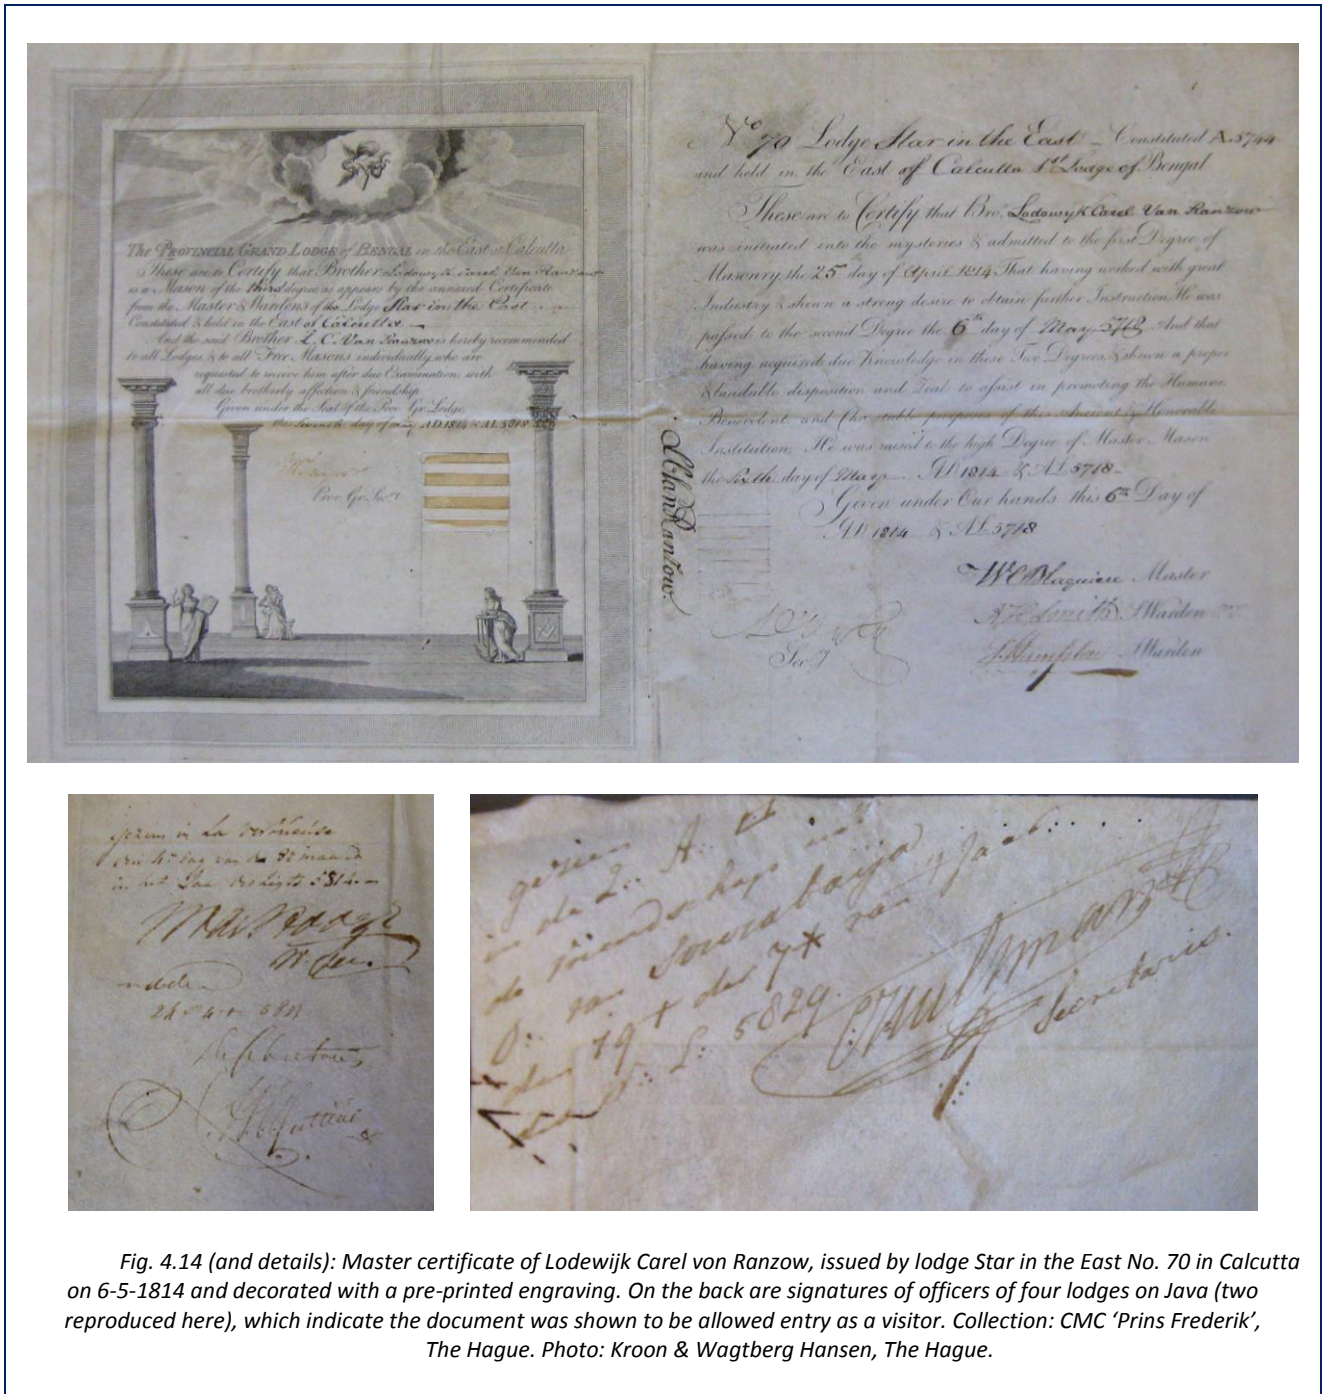 The PROVINCIAL GRAND LODGE of BENGAL in the East of Calcutta
These are to Certify that Brother Lodowyk Carel Van Ranzow
is a Mason of the third degree as appears by the annexed Certificate
from the Master & Wardens of the Lodge Star in the East
Constituted & held in the East of Calcutta
And the said Brother L. C. Van Ranzow is hereby recommended
to all Lodges & to all Free Masons individually who are
requested to receive him after due Examination, with
all due brotherly affection & friendship
Given under the Seal of the Prov. Gr. Lodge,
this Seventh day of May AD 1814 & AL 5818
Prov. Gr. Secy
L C Van Ranzow.
No 70 Lodge Star in the East - Constituted A. 5744
and held in the East of Calcutta 1st Lodge of Bengal
These are to Certify that Bro. Lodowyk Carel Van Ranzow
was initiated into the mysteries & admitted to the first Degree of
Masonry the 25th day of April 1814 That having worked with great
Industry & shewn a strong desire to obtain further Instruction, He was
passed to the second Degree the 6th day of May 5718 And that
having acquired due Knowledge in these Two Degrees, & shewn a proper
& laudable disposition and Zeal to assist in promoting the Humane,
Benevolent, and Charitable purposes of this Ancient & Honorable
Institution, He was raised to the high Degree of Master Mason
the Sixth day of May AD 1814 & AL 5718
Given under Our hands this 6th Day of
AD 1814 & AL 5718
W C Blaquiere Master
Smith S Warden
J Warden
Secy
gezien in La Vertueuse
in het
gezien
in de
de vriendschap
O: van Sourabaija
den 19 der 7
L: 5829.
Secretaris.
Fig. 4.14 (and details): Master certificate of Lodewijk Carel von Ranzow, issued by lodge Star in the East No. 70 in Calcutta
on 6-5-1814 and decorated with a pre-printed engraving. On the back are signatures of officers of four lodges on Java (two
reproduced here), which indicate the document was shown to be allowed entry as a visitor. Collection: CMC ‘Prins Frederik’,
The Hague. Photo: Kroon & Wagtberg Hansen, The Hague.